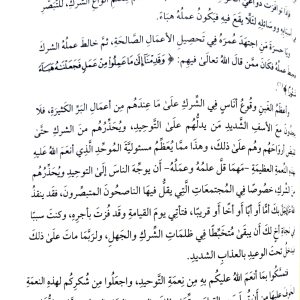 وإذا توافرت دواعي
أنواع الشرك، للتبصر
ووسائله لئلا يقع فيه فيكون عمله هباءً.
حسرة من اجتهد عُمرَهُ في تحصيل الأعمال الصَّالحة، ثمَّ خالط عملَهُ الشرك
عمله فكان ممَّن قال اللهُ تعالى فيهم: ﴿ وَقَدِمْنَآ إِلَىٰ مَا عَمِلُوا۟ مِنْ عَمَلٍ فَجَعَلْنَٰهُ هَبَآءً
وأعظمُ الغبنِ وقوعُ أُناسٍ في الشركِ علىٰ ما عِندهُم مِن أعمالِ البَرِّ الكثيرةِ، فلا
معَ الأسفِ الشديدِ مَن يدلُّهم علىٰ التَّوحيدِ، ويُحذِّرُهم مِنَ الشركِ حتَّىٰ
أرواحُهُم وهُم علىٰ ذلكَ، وهذا ممَّا يُعظِّمُ مسئوليةَ الموحِّدِ الَّذي أنعمَ اللهُ عليهِ
العظيمةِ -مَهما قلَّ علمُهُ وعملُهُ- أن يوجِّهَ الناسَ إلىٰ التوحيدِ ويُحذِّرَهُم
خصوصًا في المجتمعاتِ الَّتي يقلُّ فيها الناصحونَ المتبصِّرونَ، فقد ينقذُ
أُمًّا أو أبًا أو أخًا أو قريبًا، فتأتي يومَ القيامةِ وقد فُزتَ بأجرِهِ، وكنتَ سببًا
أخٍ لكَ أن يبقىٰ مُتخبِّطًا في ظلماتِ الشركِ والجهلِ، ولربَّما ماتَ علىٰ ذلكَ
تحتَ الوعيدِ بالعذابِ الشديدِ.
تمسَّكوا بما أنعمَ اللهُ عليكُم بِهِ مِن نِعمةِ التَّوحيدِ، واجعلوا مِن شُكرِكُم لهذِهِ النعمةِ